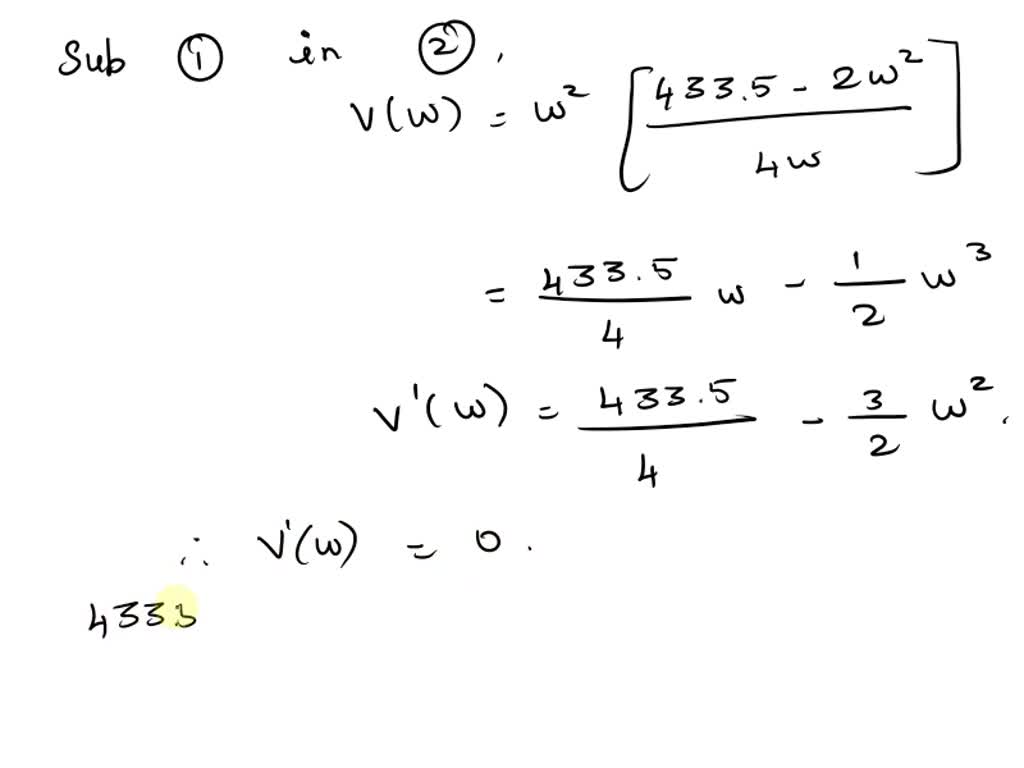 Sub ① in ②,
V(w) = w² [ (433.5 - 2w²) / 4w ]
= 433.5/4 w - 1/2 w³
V'(w) = 433.5/4 - 3/2 w².
∴ V'(w) = 0.
4333